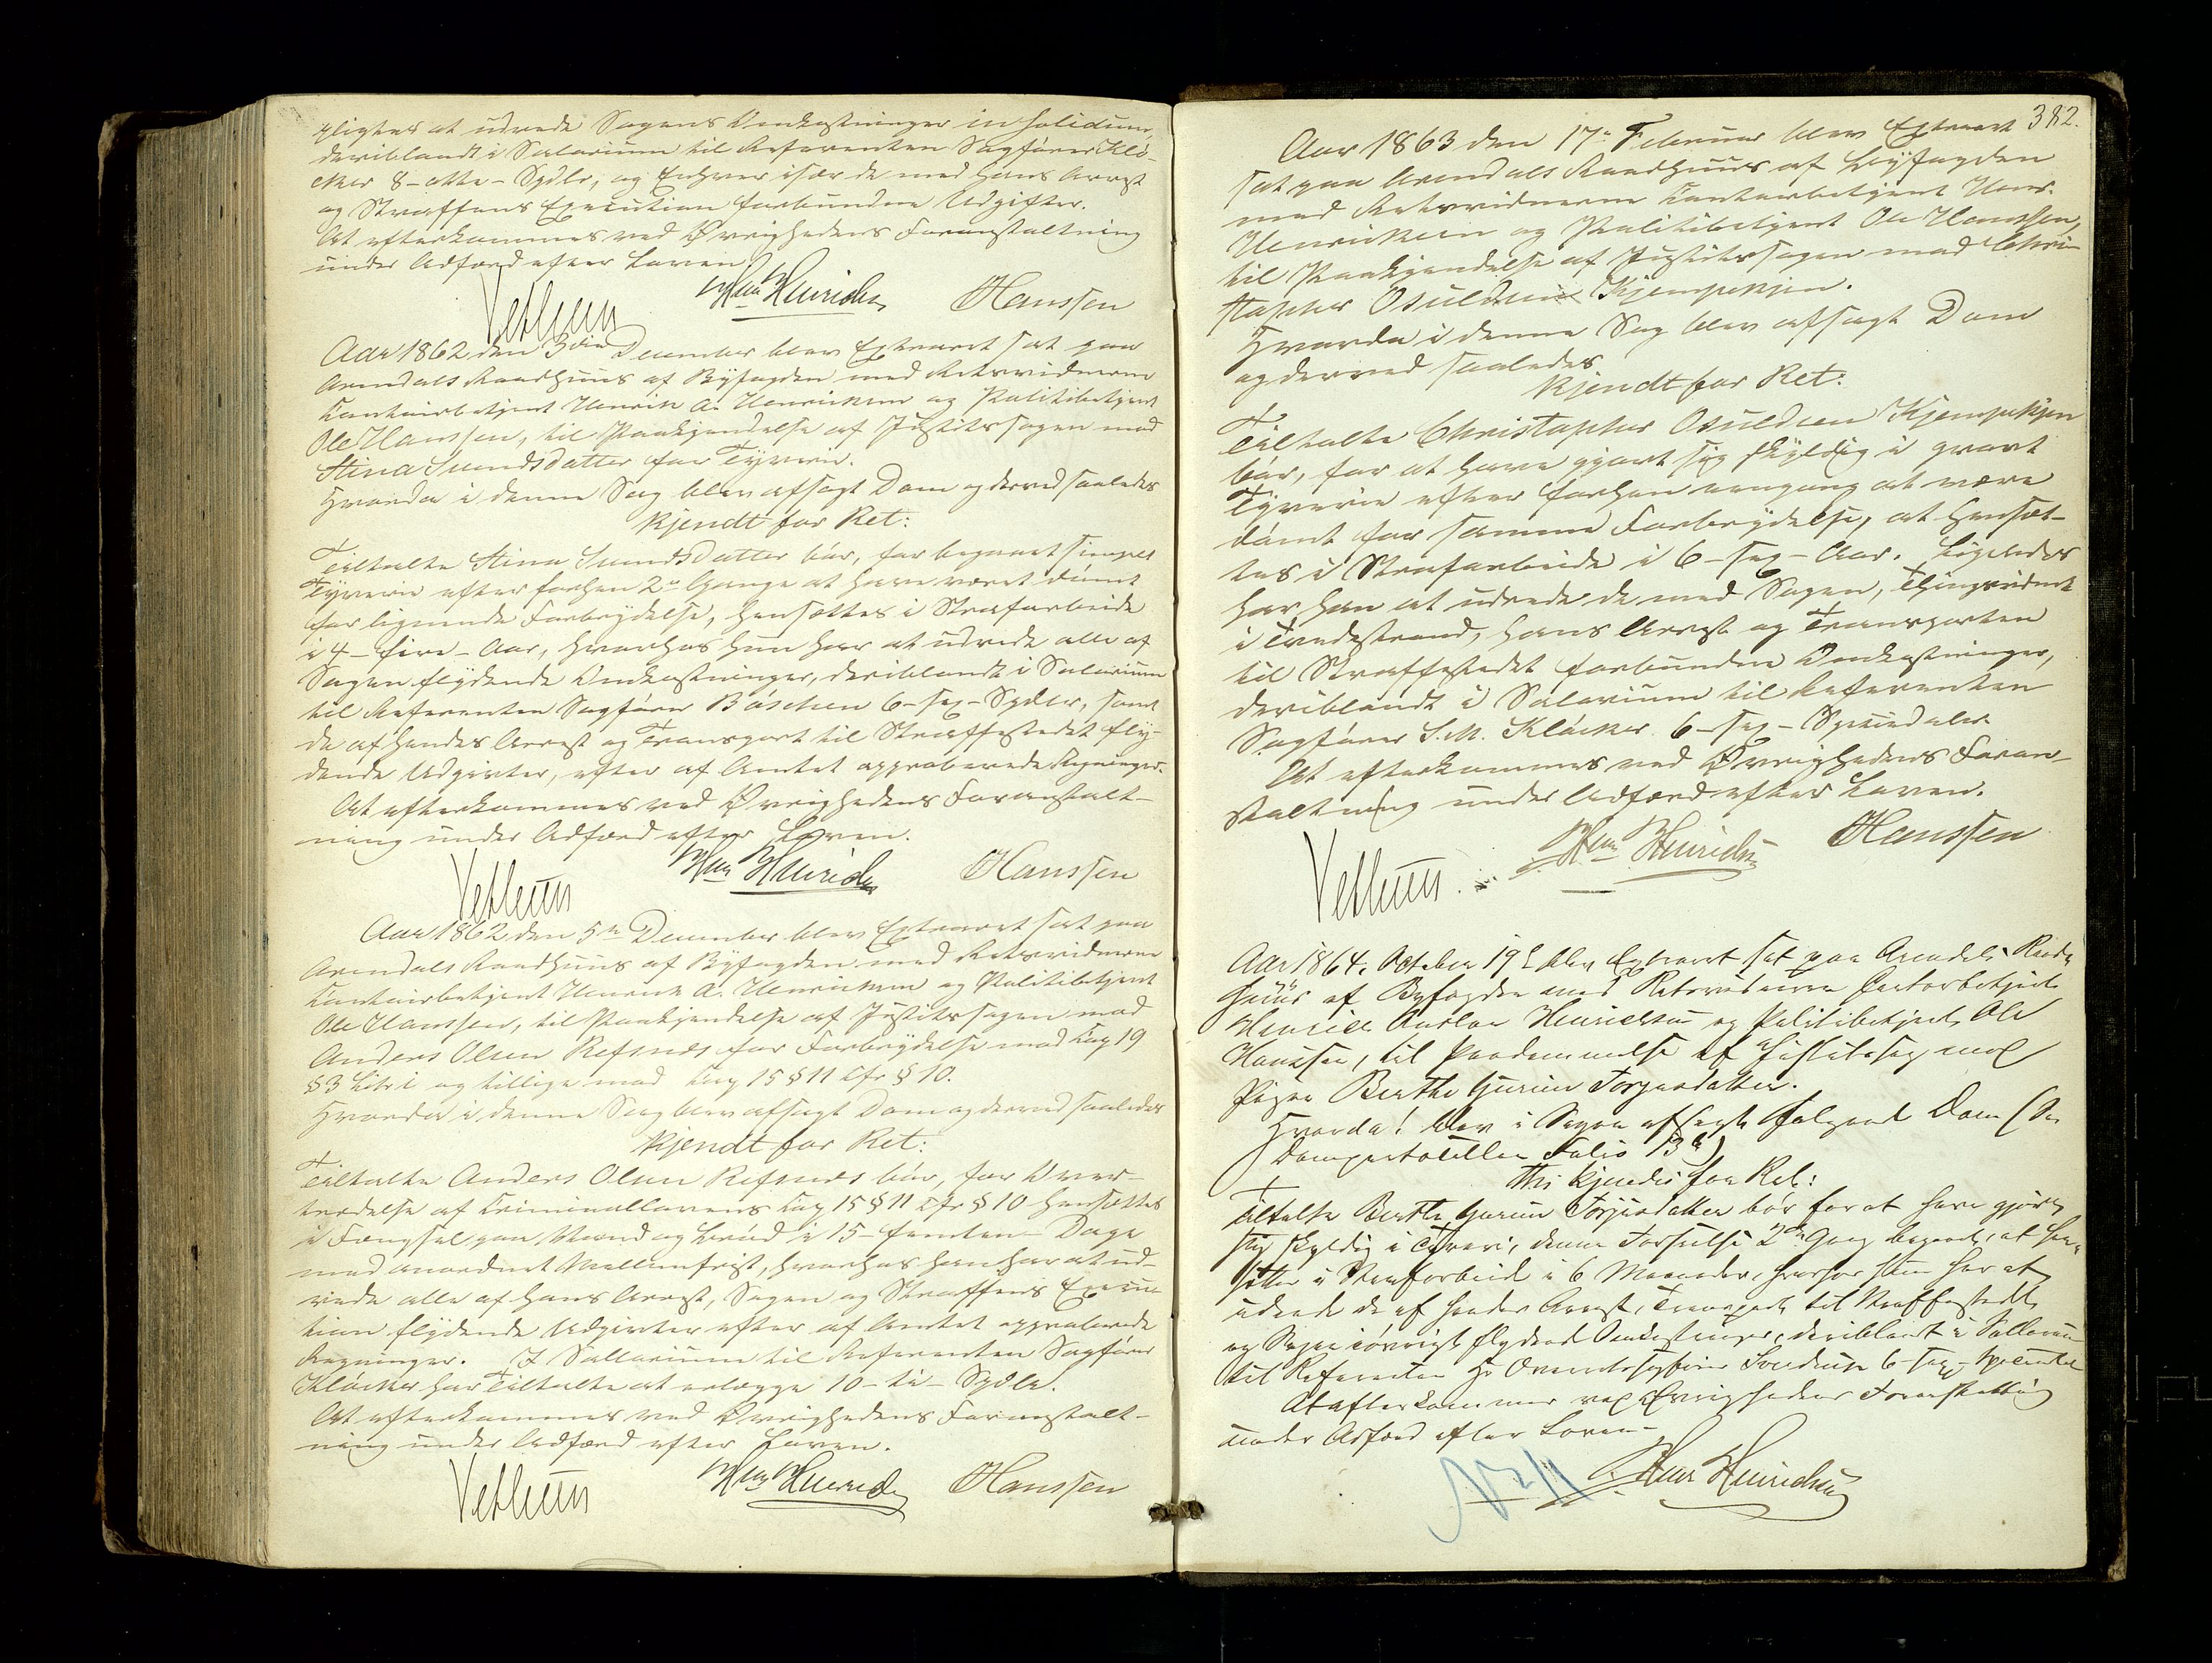 pligtes at udrede Sagens Omkostninger in solidum,
deriblandt i Salarium til Referenten Sagfører Klö-
cker 8-otte-Spdlr, og Enhver især de med hans Arrest
og Straffens Execution forbundne Udgifter.
At efterkommes ved Øvrighedens Foranstaltning
under Adfærd efter Loven.
Vethuus Henrichsen OHanssen
Aar 1862 den 3die December blev Extraret sat paa
Arendals Raadhuus af Byfogden med Retsvidnerne
Contoirbetjent Henrik A. Henriksen og Politibetjent
Ole Hanssen, til Paakjendelse af Justitssagen mod
Stina Svends Datter for Tyverie.
Hvorda i denne Sag blev afsagt Dom og derved saaledes
kjendt for Ret:
Tiltalte Stina Svends Datter bör, for begaaet simpel
Tyverie efter forhen 2de Gange at have været dömt
for lignende Forbrydelse, hensættes i Strafarbeide
i 4-fire-Aar, hvorhos hun har at udrede alle af
Sagen flydende Omkostninger, deriblandt i Salarium
til Referenten Sagförer Böschen 6-sex-Spdlr, samt
de af hendes Arrest og Transport til Straffestedet fly-
dende Udgivter, efter af Amtet approberede Regninger.
At efterkommes ved Øvrighedens Foranstalt-
ning under Adfærd efter Loven.
Vethuus Henrichsen OHanssen
Aar 1862 den 5te December blev Extraret sat paa
Arendals Raadhuus af Byfogden med Retsvidnerne
Contoirbetjent Henrik A. Henriksen og Politibetjent
Ole Hanssen, til Paakjendelse af Justitssagen mod
Anders Olsen Refsnes for Forbrydelse mod Cap 19
§3 Litr i og tillige mod Cap 15 §11 cfr §10.
Hvorda i denne Sag blev afsagt Dom og derved saaledes
kjendt for Ret:
Tiltalte Anders Olsen Refsnes bör, for Over-
trædelse af Criminallovens Cap 15 §11 cfr §10 hensættes
i Fængsel paa Vand og Bröd i 15-femten-Dage
med anordnet Mellemfrist, hvorhos han har at ud-
rede alle af hans Arrest, Sagen og Straffens Execu-
tion flydende Udgivter efter af Amtet approberede
Regninger. I Sallarium til Referenten Sagförer
Klöcker har Tiltalte at erlægge 10-ti-Spdlr.
At efterkommes ved Øvrighedens Foranstalt-
ning under Adfærd efter Loven.
Vethuus Henrichsen OHanssen
382.
Aar 1863 den 17de Februar blev Extraret
sat paa Arendals Raadhuus af Byfogden
med Retsvidnerne Contoirbetjent Hans
Henriksen og Politibetjent Ole Hanssen,
til Paakjendelse af Justitssagen mod Chri-
stopher Osuldsen Kjempekjen.
Hvorda i denne Sag blev afsagt Dom
og derved saaledes
kjendt for Ret:
Tiltalte Christopher Osuldsen Kjempekjen
bör, for at have gjort sig skyldig i grovt
Tyverie efter forhen eengang at være
dömt for samme Forbrydelse, at hensæt-
tes i Strafarbeide i 6-sex-Aar. Ligeledes
har han at udrede de med Sagen, Thingsvidnet
i Tvedestrand, hans Arrest og Transporten
til Straffestedet forbundne Omkostninger,
deriblandt i Salarium til Referenten
Sagförer S.M. Klöcker 6-sex-Speciedaler
At efterkommes ved Øvrighedens Foran-
staltning under Adfærd efter Loven.
Vethuus. Henrichsen OHanssen
Aar 1864, October 19de blev Extraret sat paa Arendals Raad-
huus af Byfogden med Retsvidnerne Contorbetjent
Henrich Henrichsen og Politibetjent Ole
Hanssen, til Paadømmelse af Justitssag mod
Pigen Berthe Gurine Torjersdatter.
Hvorda! blev i Sagen afsagt følgende Dom (See
Domprotocollen Folio 13)
Thi kjendes for Ret:
Tiltalte Berthe Gurine Torjersdatter bör for at have gjort
sig skyldig i Tyveri, denne Forseelse 2den Gang begaaet, at hen-
sættes i Strafarbeide i 6 Maaneder, hvorhos hun har at
udrede de af hendes Arrest, Transport til Straffestedet
og Sagen iövrigt flydende Omkostninger, deriblandt i Sallarium
til Referenten Hr Overretssagförer 6-sex-Speciedaler
At efterkommes ved Øvrighedens Foranstaltning
under Adfærd efter Loven-
Henrichsen